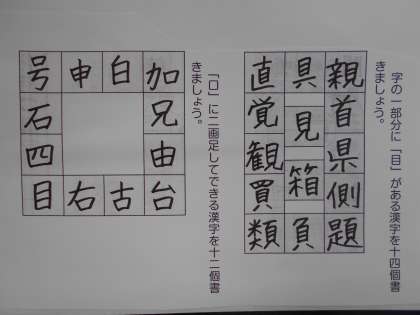 字の一部分に「目」がある漢字を十四個書
きましょう。
親首県側題
具見箱負
直覚観買類
「口」に二画足してできる漢字を十二個書
きましょう。
加兄由台
白古
申右
号石四目